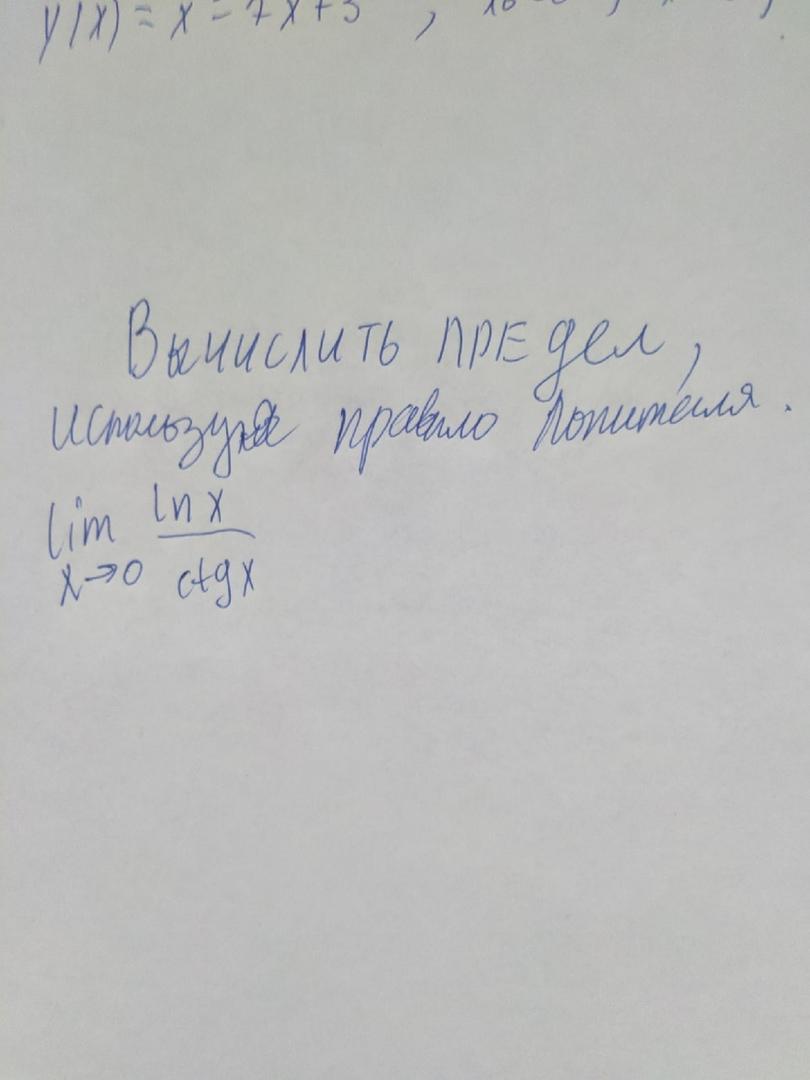 y(x) = x = 7x+3 ,
Вычислить предел,
используя правило Лопиталя.
lim ln x
x→0 ctg x